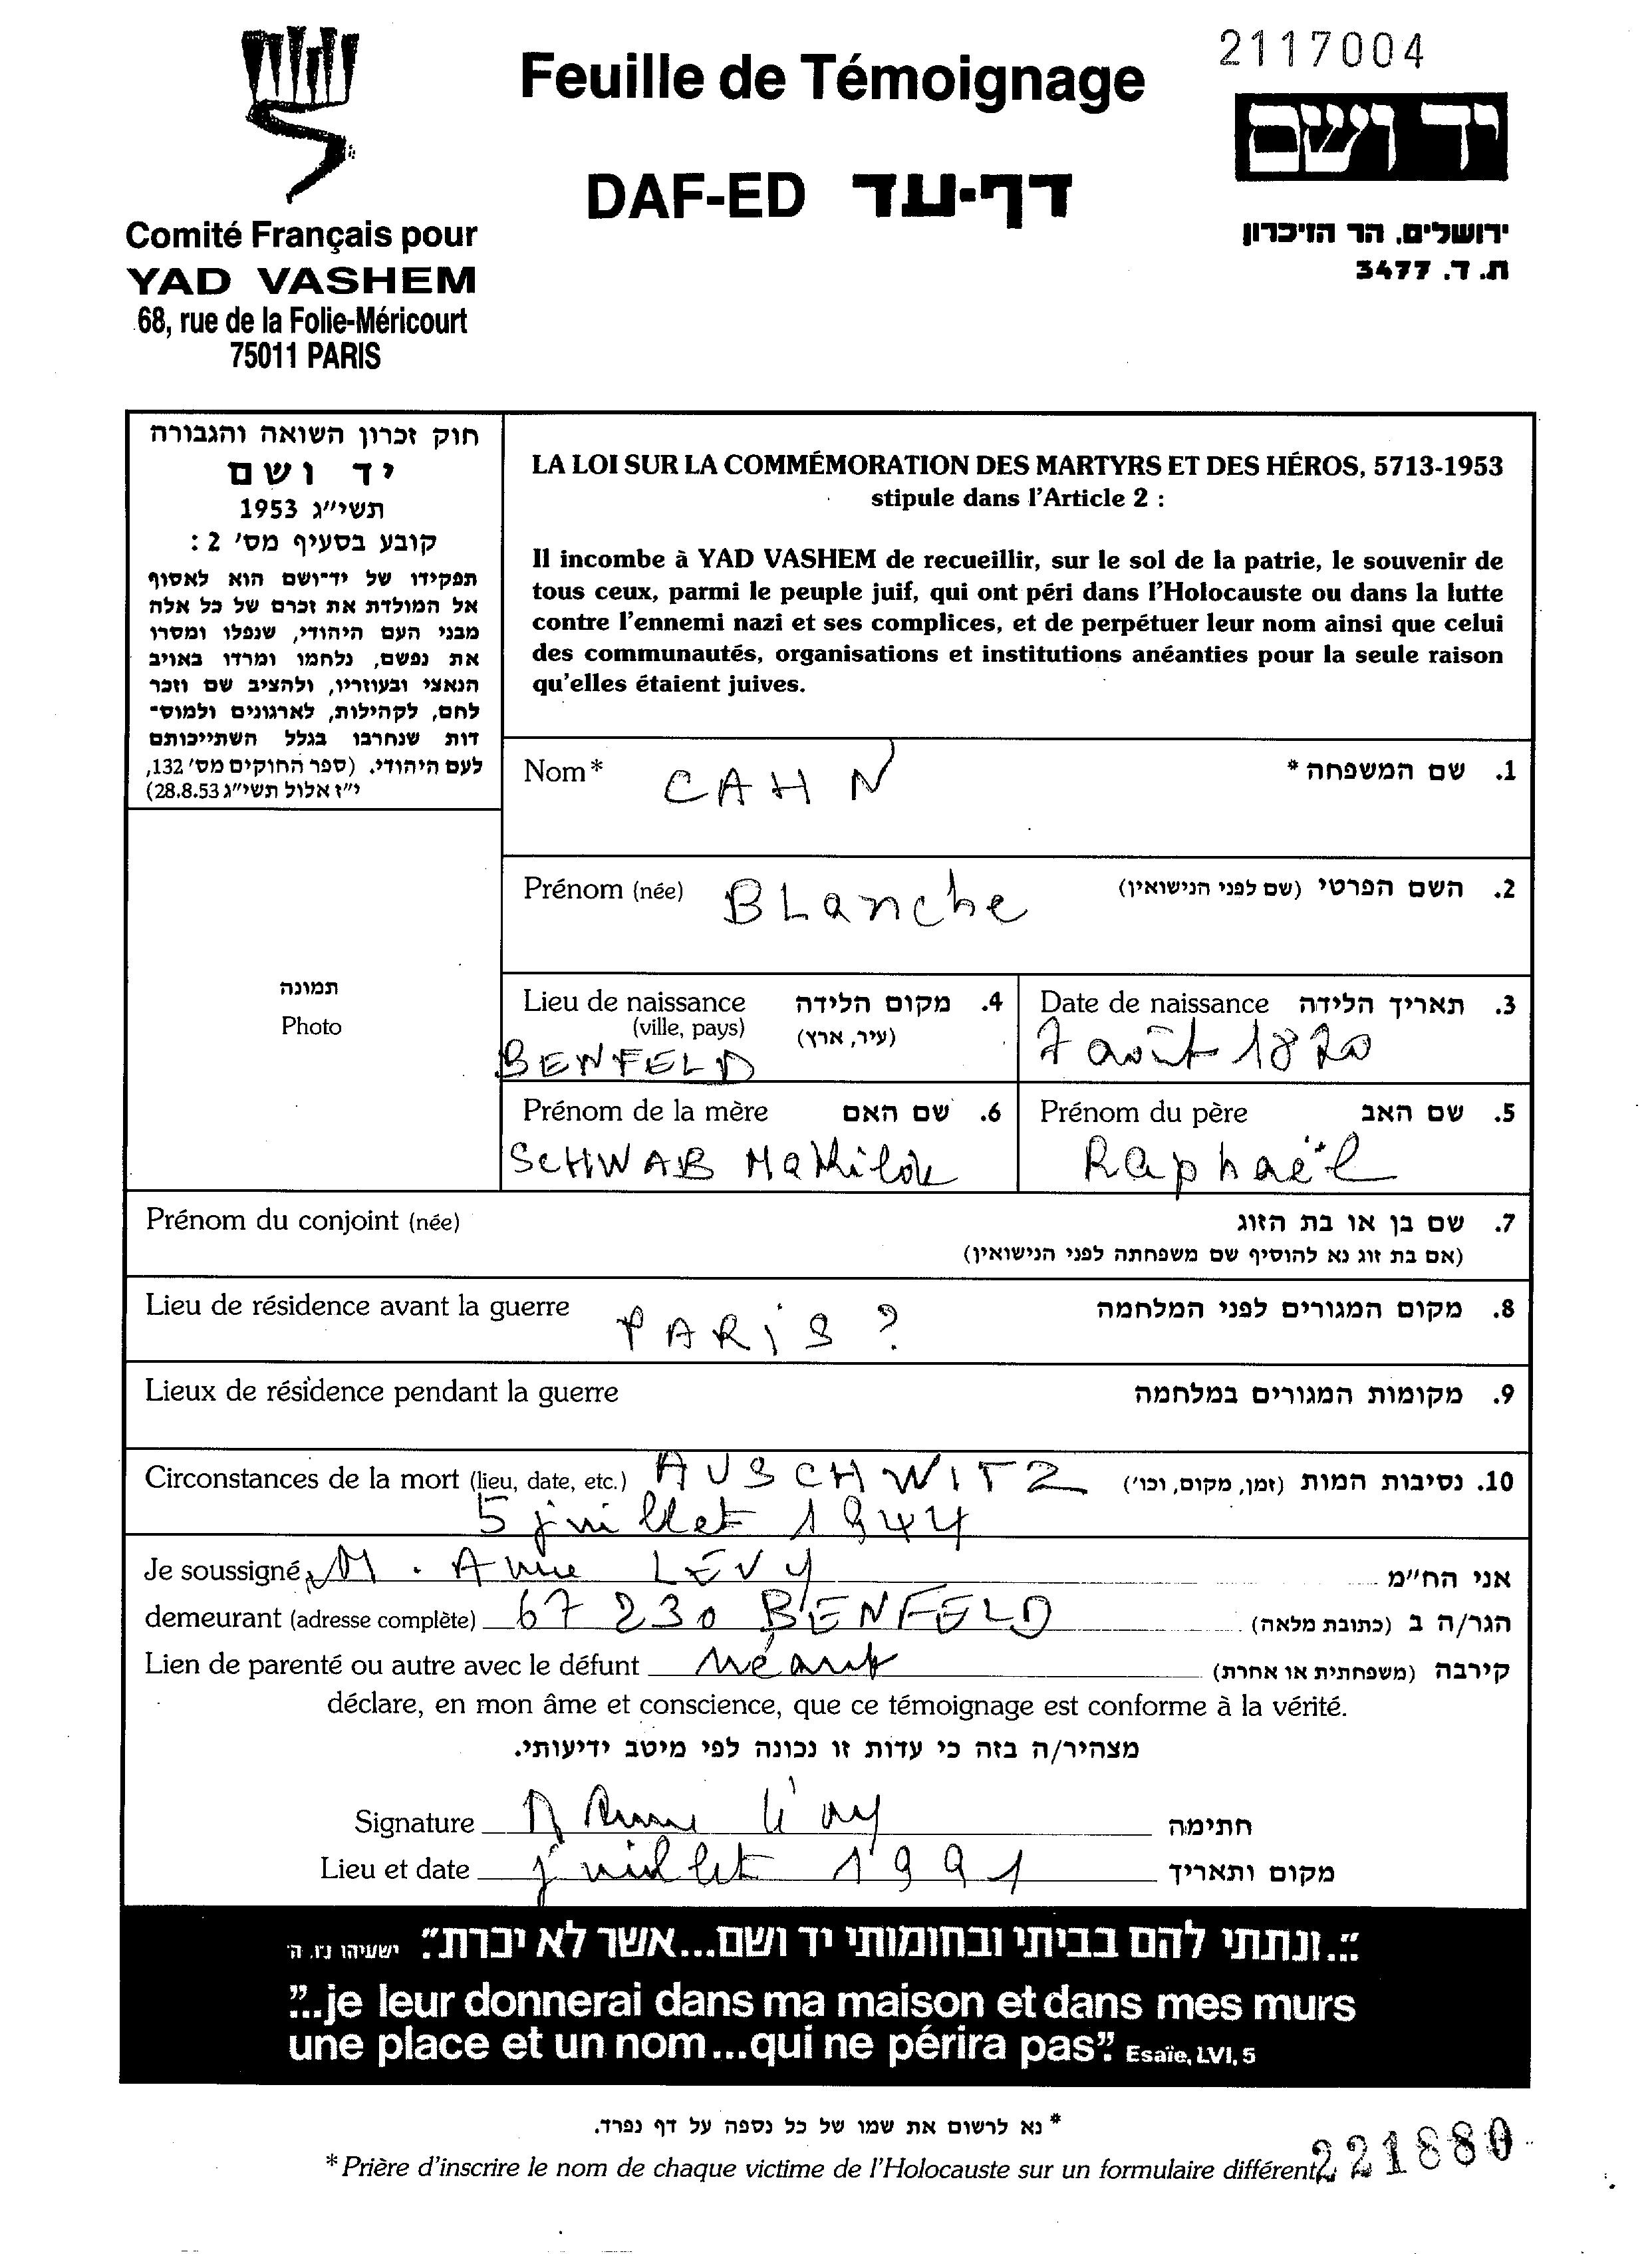 2117004
Feuille de Témoignage
DAF-ED דף-עד
יד ושם
ירושלים, הר הזיכרון
ת.ד. 3477
Comité Français pour
YAD VASHEM
68, rue de la Folie-Méricourt
75011 PARIS
חוק זכרון השואה והגבורה
יד ושם
תשי״ג 1953
קובע בסעיף מס׳ 2:
תפקידו של יד־ושם הוא לאסוף
אל המולדת את זכרם של כל אלה
מבני העם היהודי, שנפלו ומסרו
את נפשם, נלחמו ומרדו באויב
הנאצי ובעוזריו, ולהציב שם וזכר
להם, לקהילות, לארגונים ולמוס־
דות שנחרבו בגלל השתייכותם
לעם היהודי. (ספר החוקים מס׳ 132,
י״ז אלול תשי״ג 28.8.53)
LA LOI SUR LA COMMÉMORATION DES MARTYRS ET DES HÉROS, 5713-1953
stipule dans l'Article 2 :
Il incombe à YAD VASHEM de recueillir, sur le sol de la patrie, le souvenir de
tous ceux, parmi le peuple juif, qui ont péri dans l'Holocauste ou dans la lutte
contre l'ennemi nazi et ses complices, et de perpétuer leur nom ainsi que celui
des communautés, organisations et institutions anéanties pour la seule raison
qu'elles étaient juives.
Nom* CAHN 1. שם המשפחה*
Prénom (née) BLanche 2. השם הפרטי (שם לפני הנישואין)
תמונה
Photo
Lieu de naissance 4. מקום הלידה
(ville, pays) (עיר, ארץ)
BENFELD
Date de naissance 3. תאריך הלידה
7 août 1870
Prénom de la mère 6. שם האם
SCHWAB Mathilde
Prénom du père 5. שם האב
Raphaël
Prénom du conjoint (née) 7. שם בן או בת הזוג
(אם בת זוג נא להוסיף שם משפחתה לפני הנישואין)
Lieu de résidence avant la guerre PARiS ? 8. מקום המגורים לפני המלחמה
Lieux de résidence pendant la guerre 9. מקומות המגורים במלחמה
Circonstances de la mort (lieu, date, etc.) AUSCHWITZ 10. נסיבות המות (זמן, מקום, וכו׳)
5 juillet 1944
Je soussigné M. Anne LEVY אני הח״מ
demeurant (adresse complète) 67 230 BENFELD הגר/ה ב (כתובת מלאה)
Lien de parenté ou autre avec le défunt Néant קירבה (משפחתית או אחרת)
déclare, en mon âme et conscience, que ce témoignage est conforme à la vérité.
מצהיר/ה בזה כי עדות זו נכונה לפי מיטב ידיעותי.
Signature M Anne Lévy חתימה
Lieu et date juillet 1991 מקום ותאריך
״...ונתתי להם בביתי ובחומותי יד ושם...אשר לא יכרת״. ישעיהו נ״ו, ה׳
"...je leur donnerai dans ma maison et dans mes murs
une place et un nom...qui ne périra pas". Esaïe, LVI, 5
* נא לרשום את שמו של כל נספה על דף נפרד.
*Prière d'inscrire le nom de chaque victime de l'Holocauste sur un formulaire différent.
221880